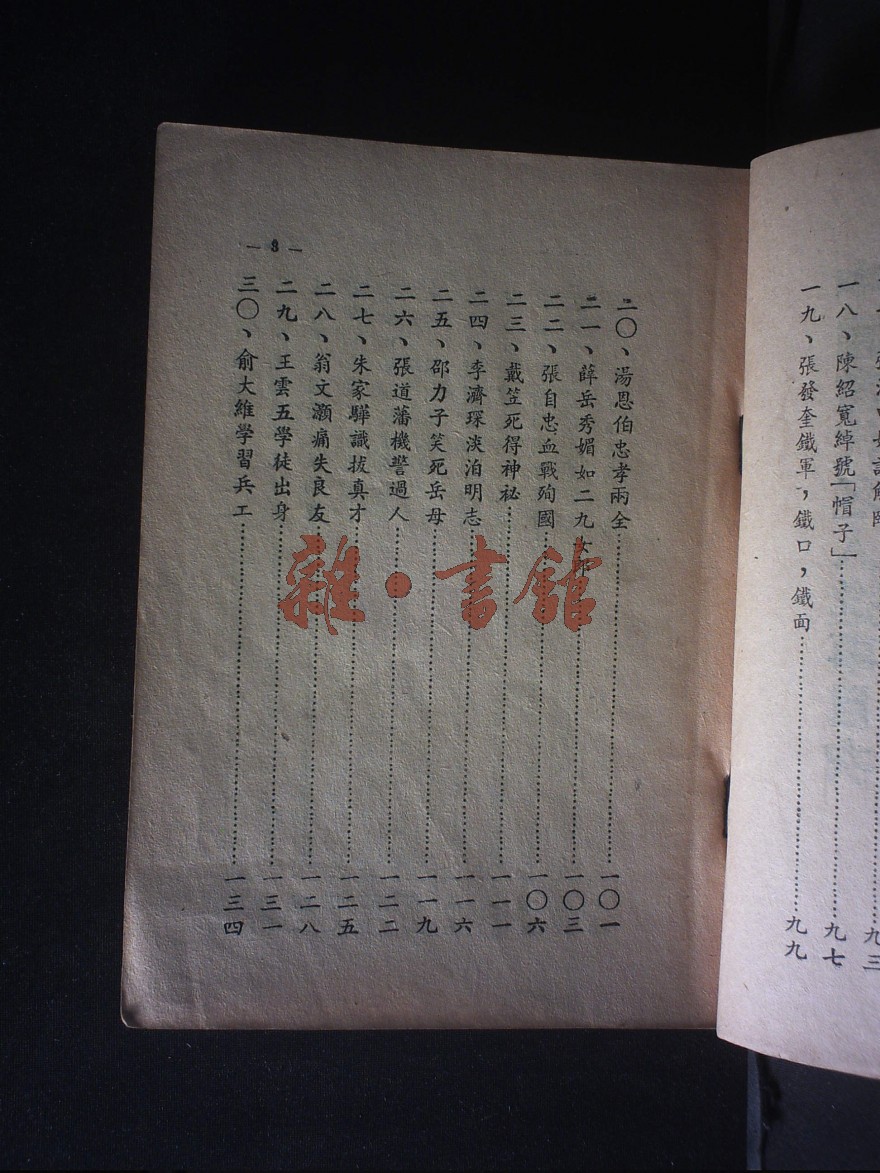 九三
一八、陳紹寬綽號「帽子」……九七
一九、張發奎鐵軍，鐵口，鐵面……九九
— 3 —
二〇、湯恩伯忠孝兩全……一〇一
二一、薛岳秀媚如二九女郎……一〇三
二二、張自忠血戰殉國……一〇六
二三、戴笠死得神祕……一一一
二四、李濟琛淡泊明志……一一六
二五、邵力子笑死岳母……一一九
二六、張道藩機警過人……一二二
二七、朱家驊識拔真才……一二五
二八、翁文灝痛失良友……一二八
二九、王雲五學徒出身……一三一
三〇、俞大維學習兵工……一三四
雜·書館